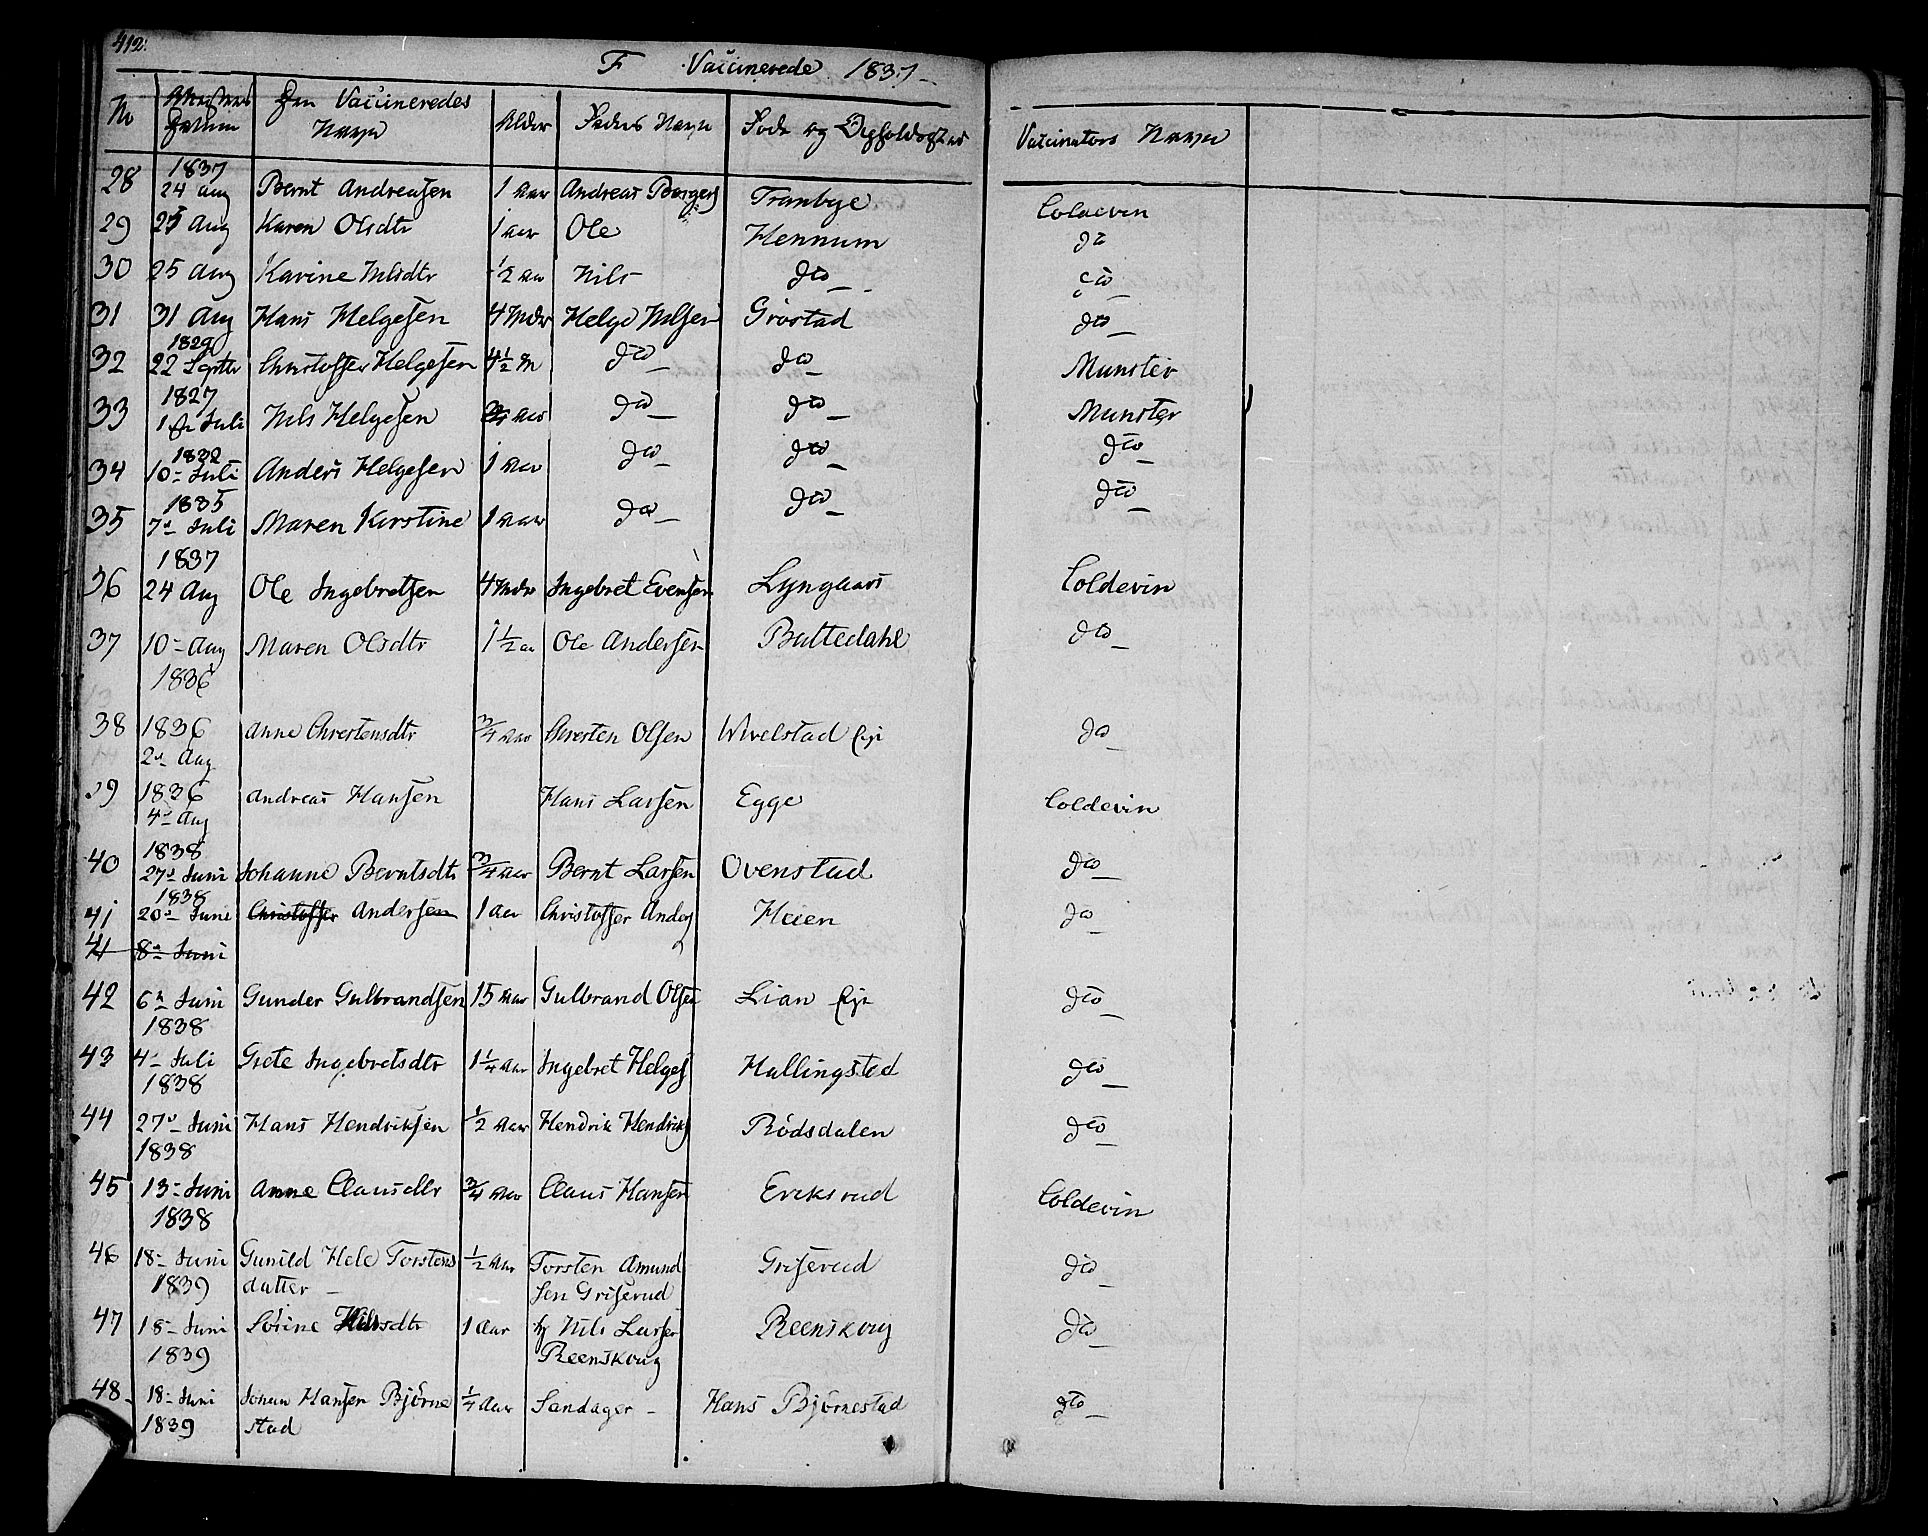 412.
F Vaccinerede 1837
No Datum Den Vaccineredes Navn Alder Faders Navn Føde og Opholdssted Vaccinators Navn
28 1837 24 Aug Bernt Andreasen 1 Aar Andreas Tranbye Coldevin
29 25 Aug Karen Olsdtr 1 aar Ole Hennum do
30 25 Aug Karine Nilsdtr ½ aar Nils do do
31 31 Aug Hans Helgesen 4 Mdr Helge Nilsen Grøstad do
32 1829 22 Septbr Christoffer Helgesen 4½ M do do Munster
33 1827 1 Juli Nils Helgesen Aar do do Munster
34 1832 10 Juli Anders Helgesen 1 Aar do do do
35 1835 7d Juli Maren Kirstine 1 aar do do do
36 1837 24 Aug Ole Ingebretsen 4 Mdr Ingebret Evensen Lyngaas Coldevin
37 10 Aug Maren Olsdtr 1½ aa Ole Andersen Buttedahl do
1836
38 1836 Anne Chrestensdtr ¾ Aar Chresten Olsen Wivelstad Eje do
2d Aug
39 1836 Andreas Hansen Hans Larsen Egge Coldevin
4d Aug
40 1838 27d Juni Johanne Berntsdtr ¾ Aar Bernt Larsen Ovenstad do
41 1838 20d Juni Christoffer Andersen 1 Aar Christoffer Anders Heien do
41 8d Juni
42 6d Juni Gunder Gulbrandsen 15 Aar Gulbrand Olsen Lian Eje do
1838
43 4 Juli Grete Ingebretsdtr 1¼ Aar Ingebret Helges Hallingstad do
1838
44 27d Juni Hans Hendriksen ½ Aar Hendrik Hendriks Rødsdalen do
1838
45 13 Juni Anne Clausdtr ¾ Aar Claus Hansen Eriksrud Coldevin
1838
46 18 Juni Gunild Hele Torstens ½ Aar Torsten Amund Griserud do
1839 datter sen Griserud
47 18 Juni Sørine Nilsdtr 1 Aar Nils Larsen Reenskoug do
1839 Reenskoug
48 18 Juni Johan Hansen Bjørne ¼ Aar Sandager Hans Bjørnestad do
1839 stad